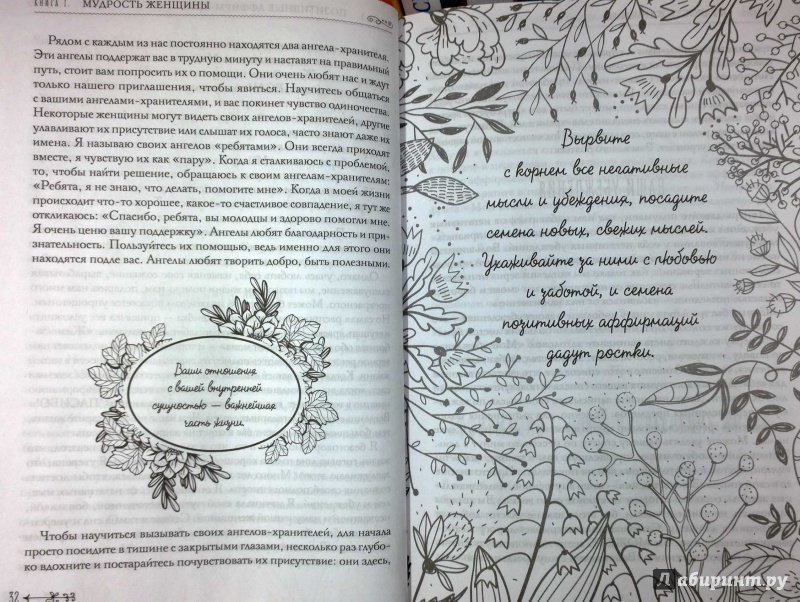 КНИГА 1 МУДРОСТЬ ЖЕНЩИНЫ
Рядом с каждым из нас постоянно находятся два ангела-хранителя.
Эти ангелы поддержат вас в трудную минуту и наставят на правильный
путь, стоит вам попросить их о помощи. Они очень любят нас и ждут
только нашего приглашения, чтобы явиться. Научитесь общаться
с вашими ангелами-хранителями, и вас покинет чувство одиночества.
Некоторые женщины могут видеть своих ангелов-хранителей, другие
улавливают их присутствие или слышат их голоса, часто знают даже их
имена. Я называю своих ангелов «ребятами». Они всегда приходят
вместе, я чувствую их как «пару». Когда я сталкиваюсь с проблемой,
то, чтобы найти решение, обращаюсь к своим ангелам-хранителям:
«Ребята, я не знаю, что делать, помогите мне». Когда в моей жизни
происходит что-то хорошее, какое-то счастливое совпадение, я тут же
откликаюсь: «Спасибо, ребята, вы молодцы и здорово помогли мне.
Я очень ценю вашу поддержку». Ангелы любят благодарность и при-
знательность. Пользуйтесь их помощью, ведь именно для этого они
находятся подле вас. Ангелы любят творить добро, быть полезными.
Ваши отношения
с вашей внутренней
сущностью — важнейшая
часть жизни.
Чтобы научиться вызывать своих ангелов-хранителей, для начала
просто посидите в тишине с закрытыми глазами, несколько раз глубо-
ко вдохните и постарайтесь почувствовать их присутствие: они здесь,
32
33
Вырвите
с корнем все негативные
мысли и убеждения, посадите
семена новых, свежих мыслей.
Ухаживайте за ними с любовью
и заботой, и семена
позитивных аффирмаций
дадут ростки.
Лабиринт.ру